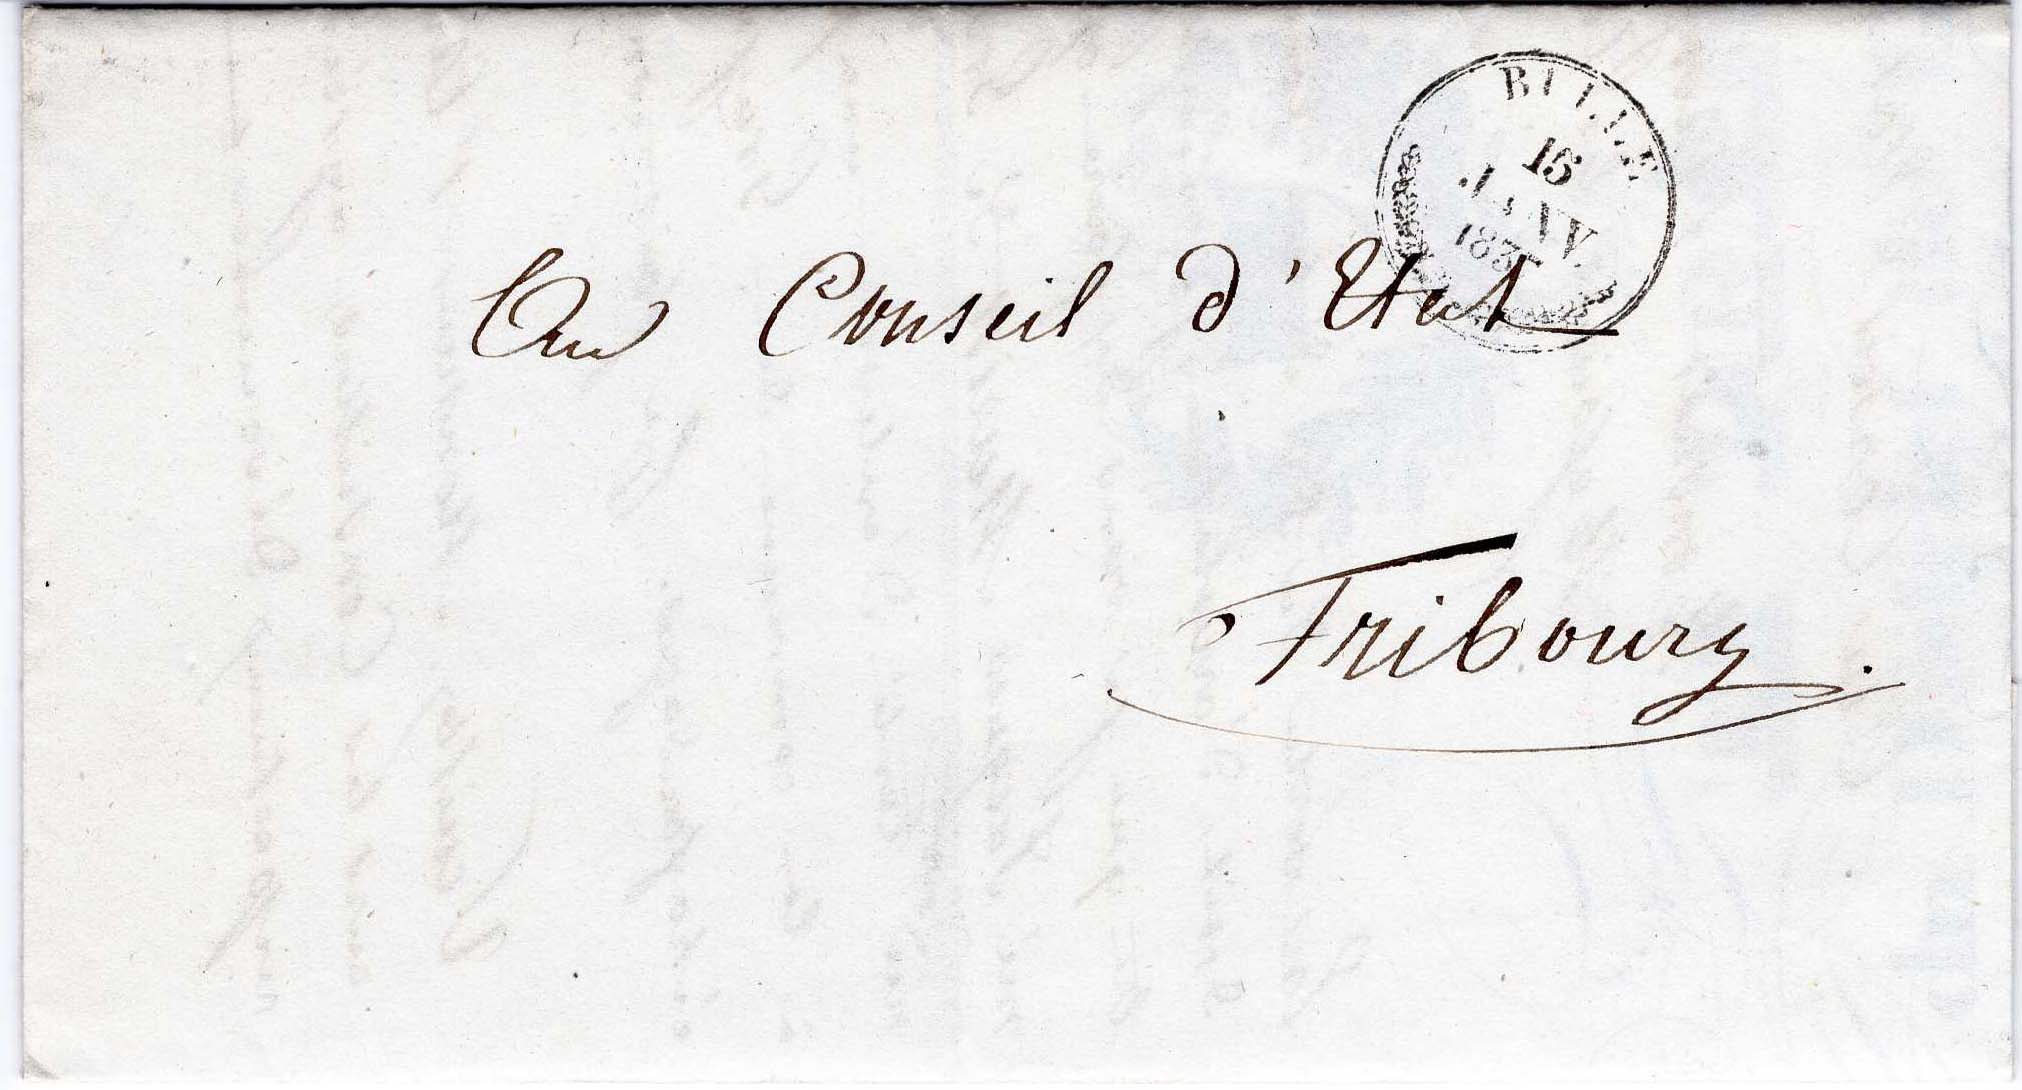 BULLE
15
JANV.
Au Conseil d'Etat
Fribourg.